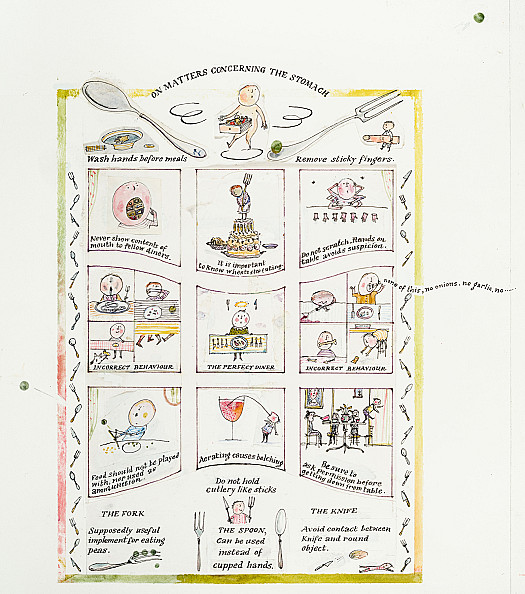 ON MATTERS CONCERNING THE STOMACH
Wash hands before meals
Remove sticky fingers.
Never show contents of
mouth to fellow diners.
It is important
to know when to stop eating.
Do not scratch. Hands on
table avoids suspicion.
none of this, no onions, no garlic, no.....
INCORRECT BEHAVIOUR
THE PERFECT DINER
INCORRECT BEHAVIOUR
Food should not be played
with, nor used as
ammunition.
Aerating causes belching
Be sure to
ask permission before
getting down from table.
Do not hold
cutlery like sticks
THE FORK
Supposedly useful
implement for eating
peas.
THE SPOON,
Can be used
instead of
cupped hands.
THE KNIFE
Avoid contact between
Knife and round
object.